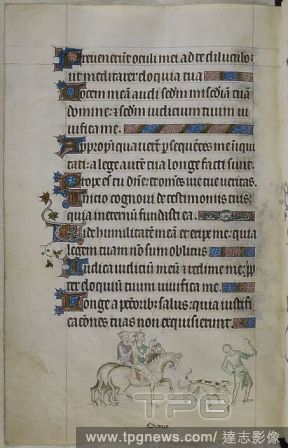 Prevenerūt oculi mei ad te diluculo: ut
meditarer eloquia tua
Vocem meā audi sc̄dm mīam tuā
domine: & sc̄dm iudicium tuum vi
vifica me.
Appropīquaverūt persequētes me īiqui
tati: a lege autē tua longe facti sunt.
Prope es tu dn̄e: & om̄es vie tue veritas.
Inicio cognovi de testimoniis tuis:
quia ī eternū fundasti ea.
Vide humilitatē meā & eripe me: quia
legem tuam nō sum oblitus
Iudica iudiciū meū & redime me: p̄p
ter eloquiū tuum vivifica me.
Longe a pctōrib; salus: quia iustifi
cacōnes tuas non exquisierunt.
TPG
www.tpgnews.com / 達志影像